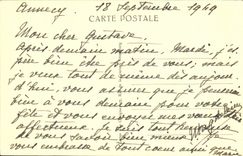 Annecy 18 Septembre 1949
CARTE POSTALE
Mon cher Gustave.
Après demain matin, Mardi, j'ai
peu être près de vous, mais
je veux tout de même dès aujour
d'hui, vous assurer que je penserai
bien à vous demain pour votre
fête et vous envoyer mes vœux
affectueux. Je suis tout
de vous savoir bien mieux. Je
vous embrasse de tout cœur ainsi que